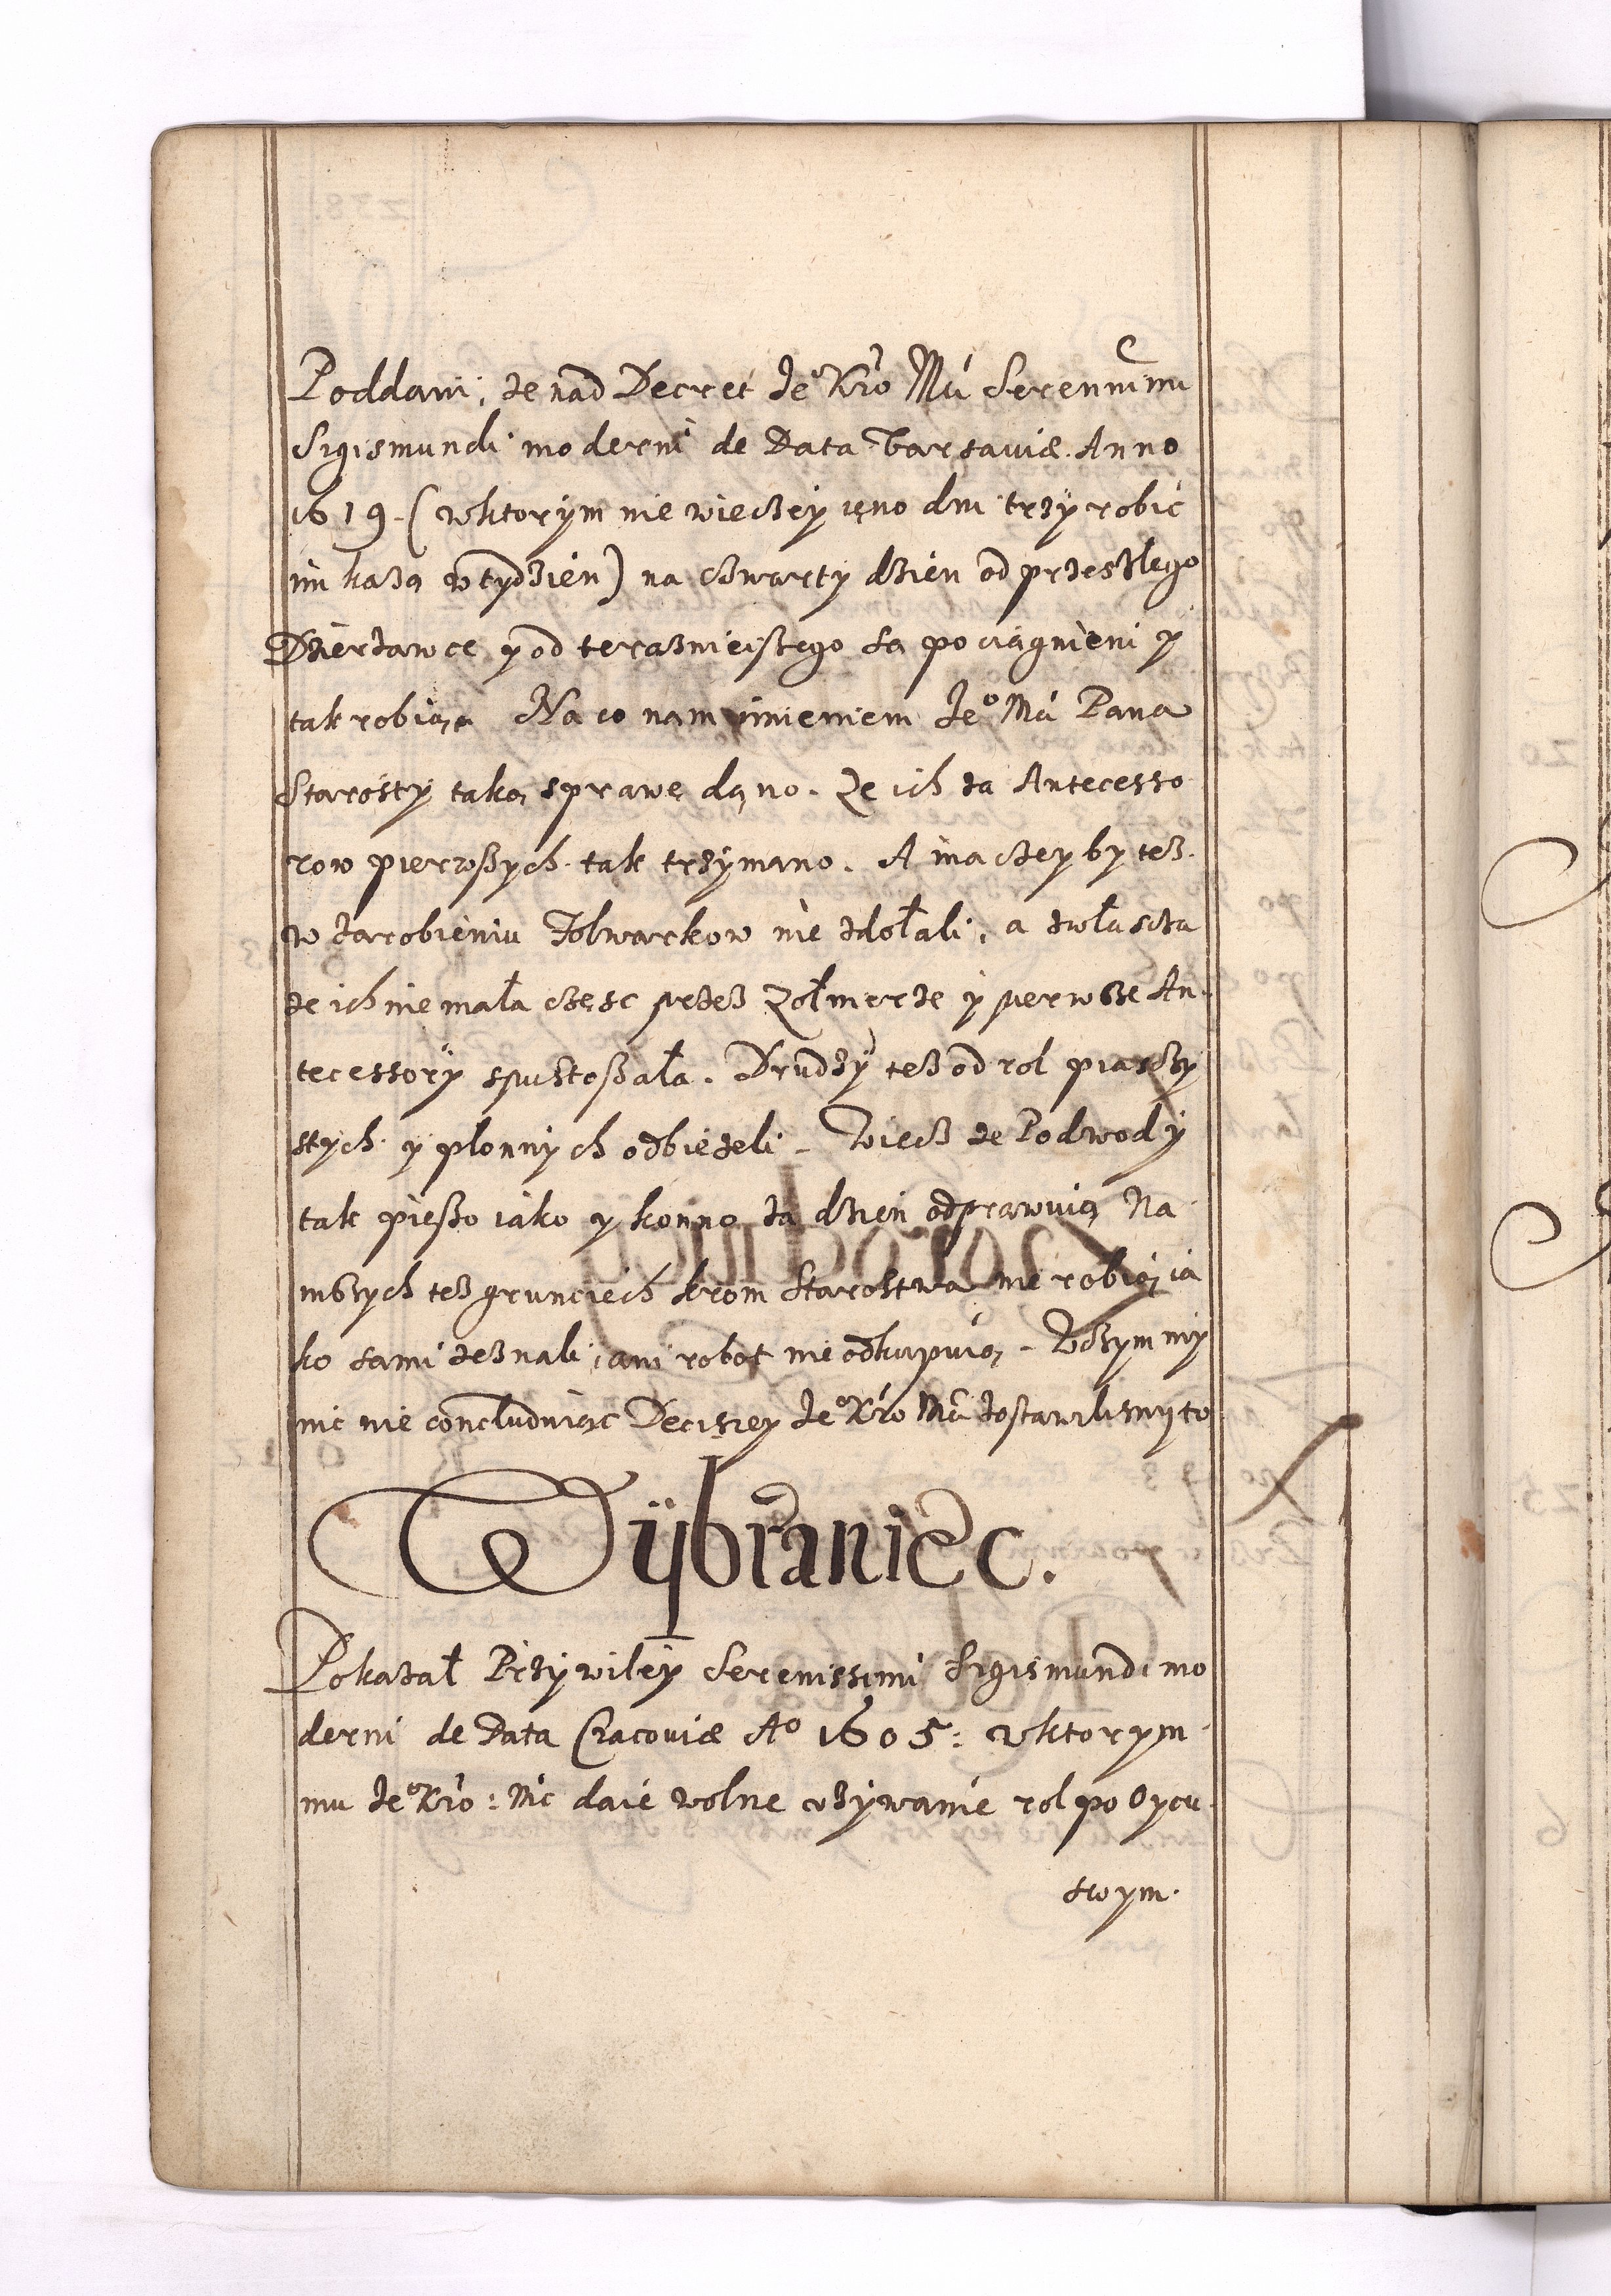 Poddani, ze nad Decret Jeº Kro Mći Serenmi mi
Sigismundi moderni de Data Varsaviæ Anno
1619. (wktorym nie wieczey ieno dni trzy robić
im kazą w tydzien) na czwarty dzien od przeszlego
Dzierzawce y od terazniejszego są pociągnieni y
tak robią. Na co nam imieniem Jeº Mći Pana
Starosty taką sprawę dano. Ze ich za Antecesso
row pierwszych tak trzymano. A inaczey by tez.
w zarobieniu Folwarkow nie zdołali, a zwłascza
ze ich nie mała częsc przez Zołnierze y pierwsze An-
tecessory spustoszała. Drudzy tez od rol piasczy
stych y płonnych odbiezeli. Wiecz ze Podwody
tak pieszo iako y konno za dzien odprawuią Na
inszych tez grunciech krom Starostwa nie robią, ia
ko sami zeznali, ani robot nie odkupuią. Wczym my
nic nie concludniąc Decisiey Jeº Kro Mći zostawilismy to
Wybraniec.
Pokazał Przywiley Serenissimi Sigismundi mo
derni de Data Cracoviæ Aº 1605: wktorym
mu Jeº Kro: Mć daie wolne vzywanie rol po Oycu.
swym.